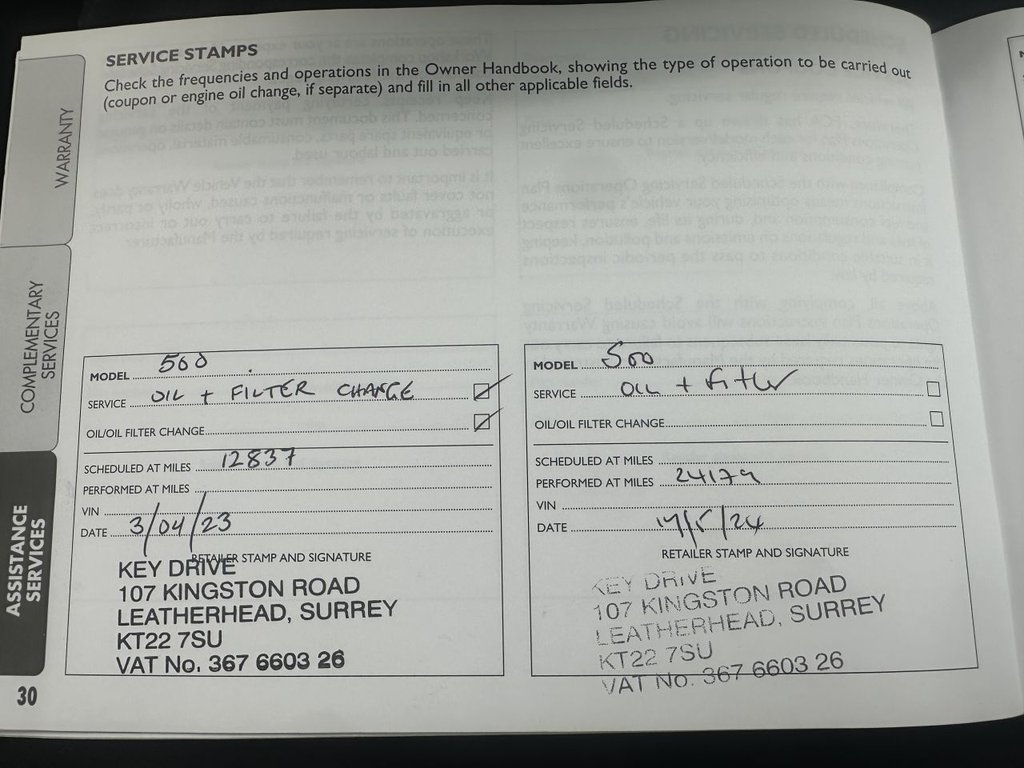 SERVICE STAMPS
Check the frequencies and operations in the Owner Handbook, showing the type of operation to be carried out
(coupon or engine oil change, if separate) and fill in all other applicable fields.
WARRANTY
COMPLEMENTARY
SERVICES
ASSISTANCE
SERVICES
MODEL 500
SERVICE OIL + FILTER CHANGE
OIL/OIL FILTER CHANGE
SCHEDULED AT MILES 12837
PERFORMED AT MILES
VIN
DATE 3/04/23
RETAILER STAMP AND SIGNATURE
KEY DRIVE
107 KINGSTON ROAD
LEATHERHEAD, SURREY
KT22 7SU
VAT No. 367 6603 26
MODEL 500
SERVICE OIL + Filter
OIL/OIL FILTER CHANGE
SCHEDULED AT MILES
PERFORMED AT MILES 24179
VIN
DATE 17/5/24
RETAILER STAMP AND SIGNATURE
KEY DRIVE
107 KINGSTON ROAD
LEATHERHEAD, SURREY
KT22 7SU
VAT No. 367 6603 26
30